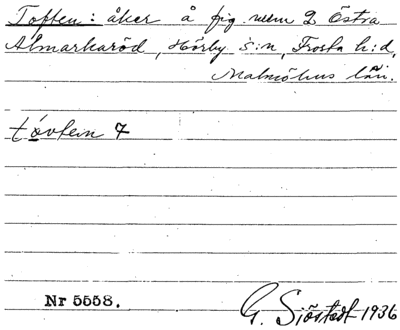 Toften: åker å fig. num 2 Östra
Almarkaröd, Hörby s:n, Frosta h:d,
Malmöhus län.
tóvten 7
Nr 5558.
G. Sjöstedt 1936